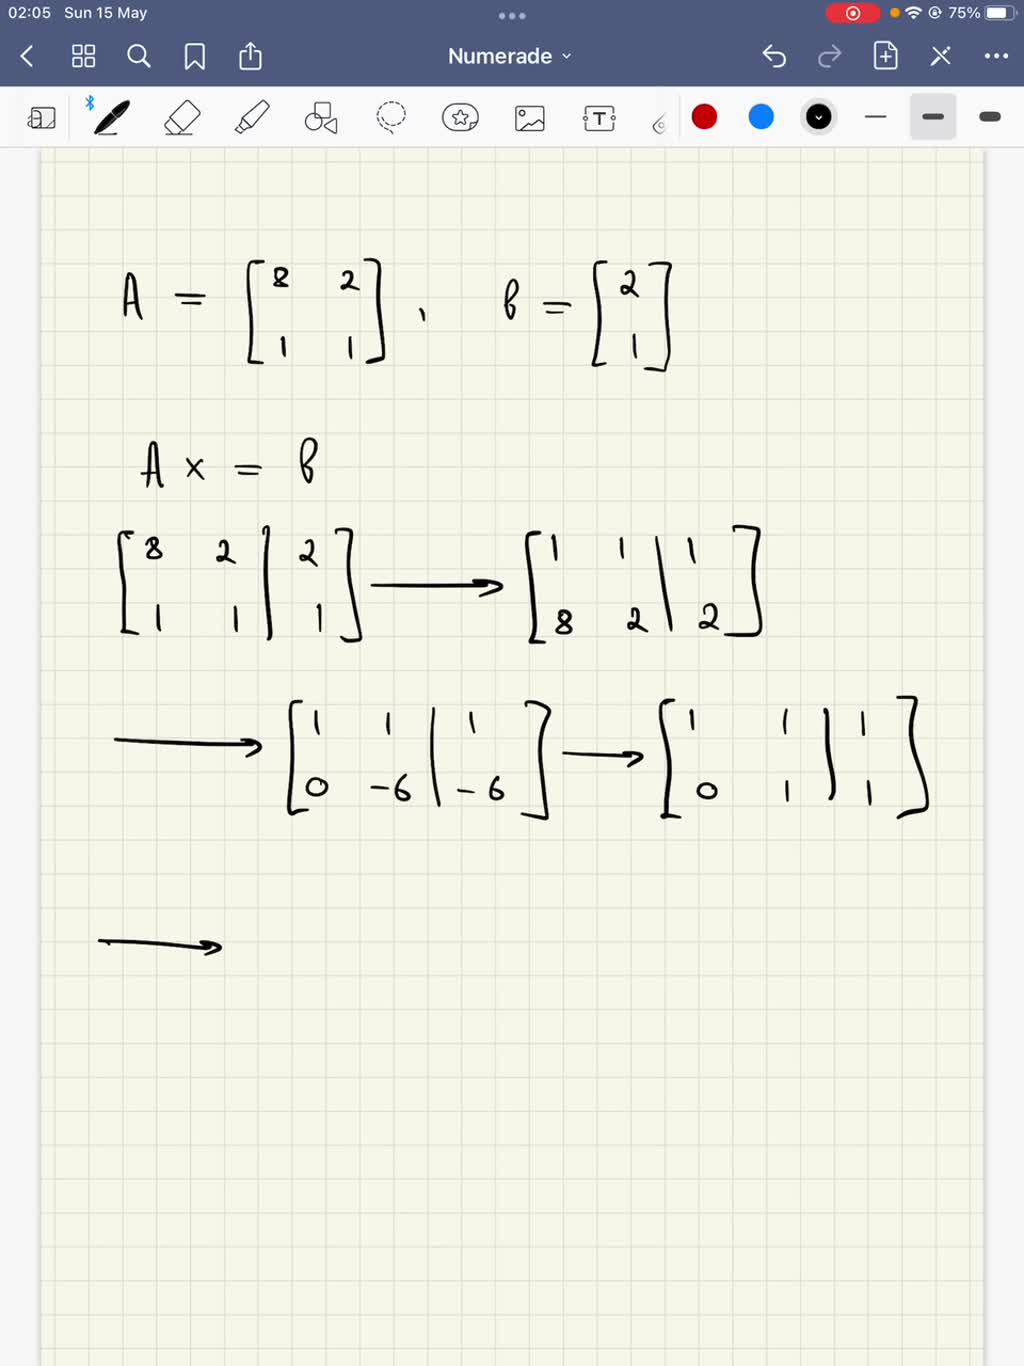 02:05 Sun 15 May 75%
Numerade
T
A = [8 2 1 1], b = [2 1]
A x = b
[8 2 | 2] → [1 1 | 1]
[1 1 | 1] [8 2 | 2]
→ [1 1 | 1] → [1 1 | 1]
[0 -6 | -6] [0 1 | 1]
→